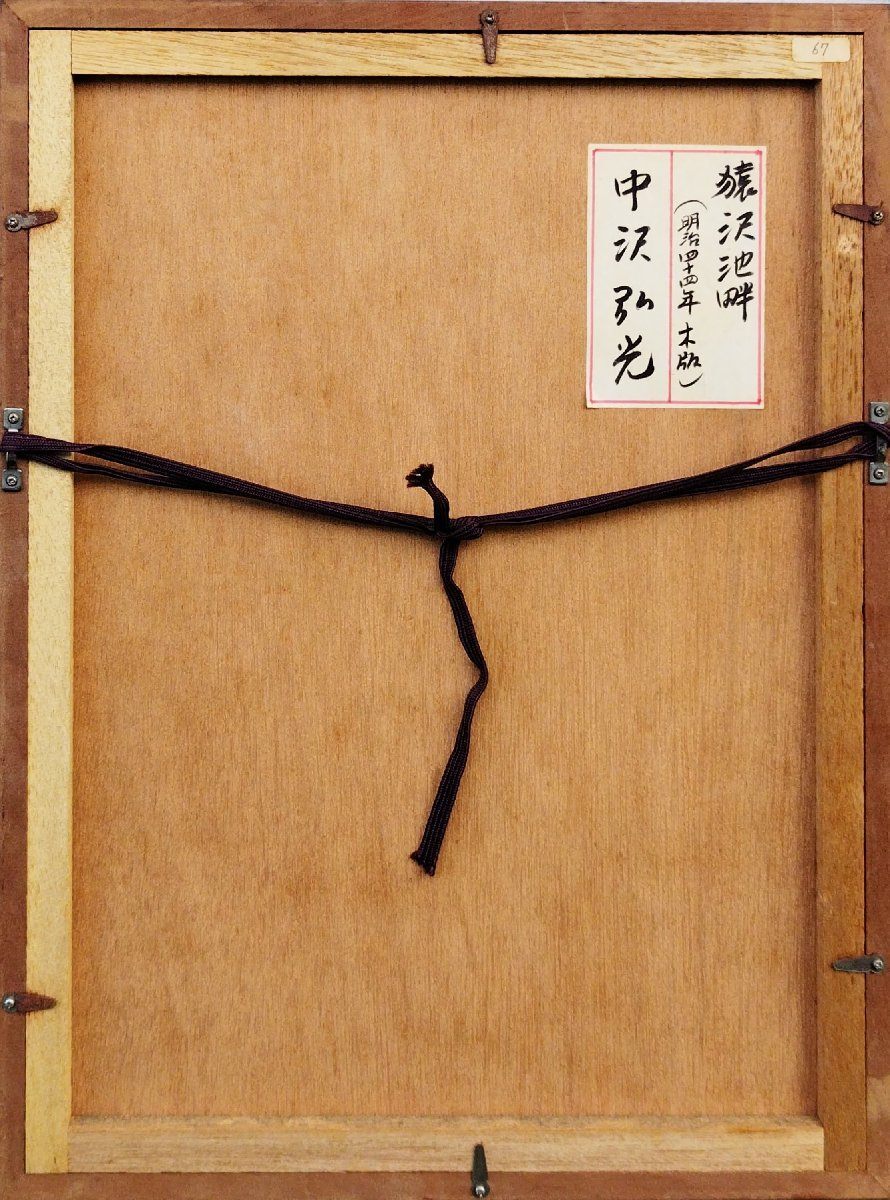 67
猿沢池畔
(明治四十四年 木版)
中沢弘光